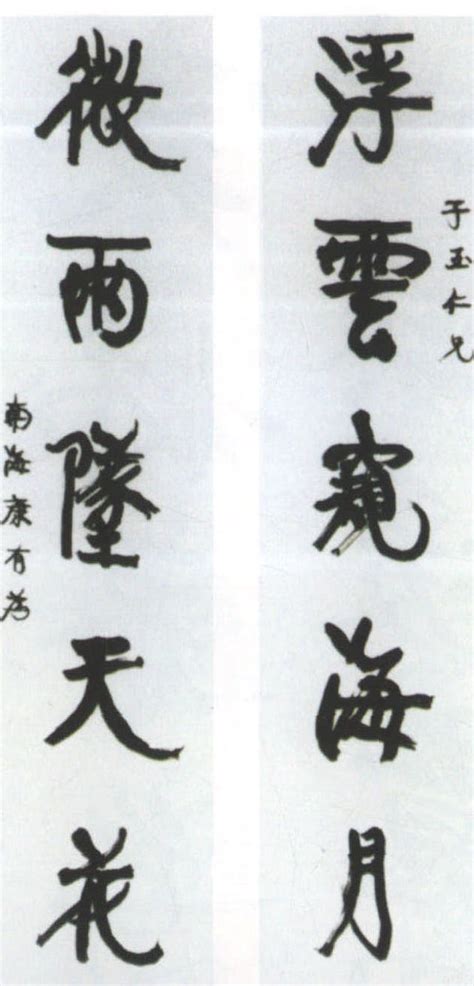 于玉仁兄
浮雲窺海月
微雨墜天花
南海康有為